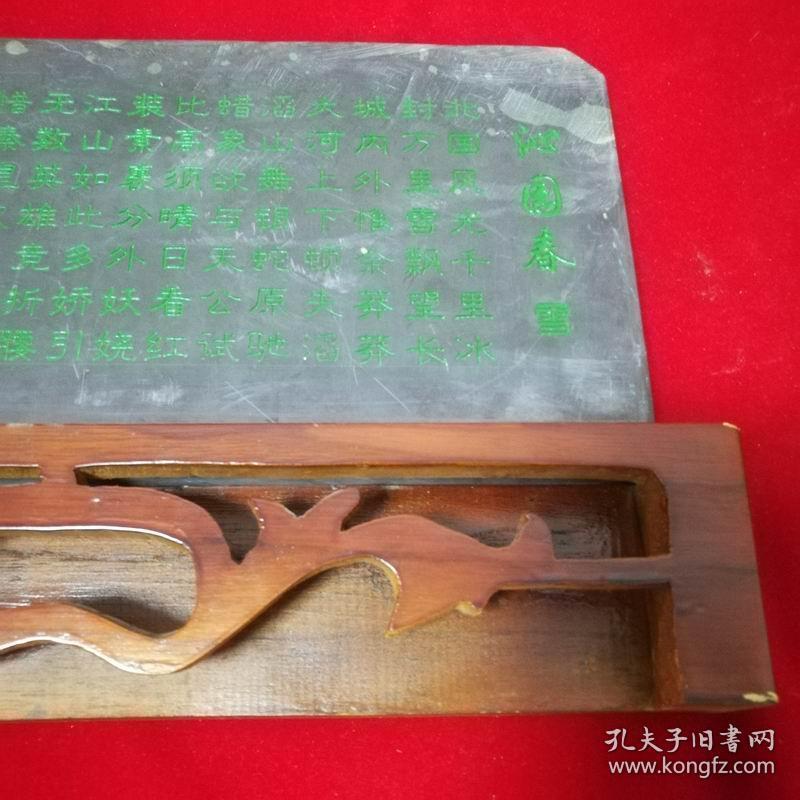 沁園春 雪
北国风光千里冰
封万里雪飘望长
城内外惟余莽莽
大河上下顿失滔
滔山舞银蛇原驰
蜡象欲与天公试
比高须晴日看红
装素裹分外妖娆
江山如此多娇引
无数英雄竞折腰
惜秦
孔夫子旧书网
www.kongfz.com